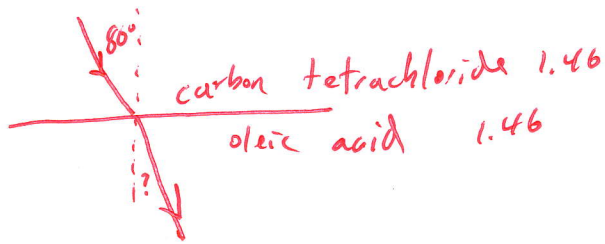 80°
carbon tetrachloride 1.46
oleic acid 1.46
?